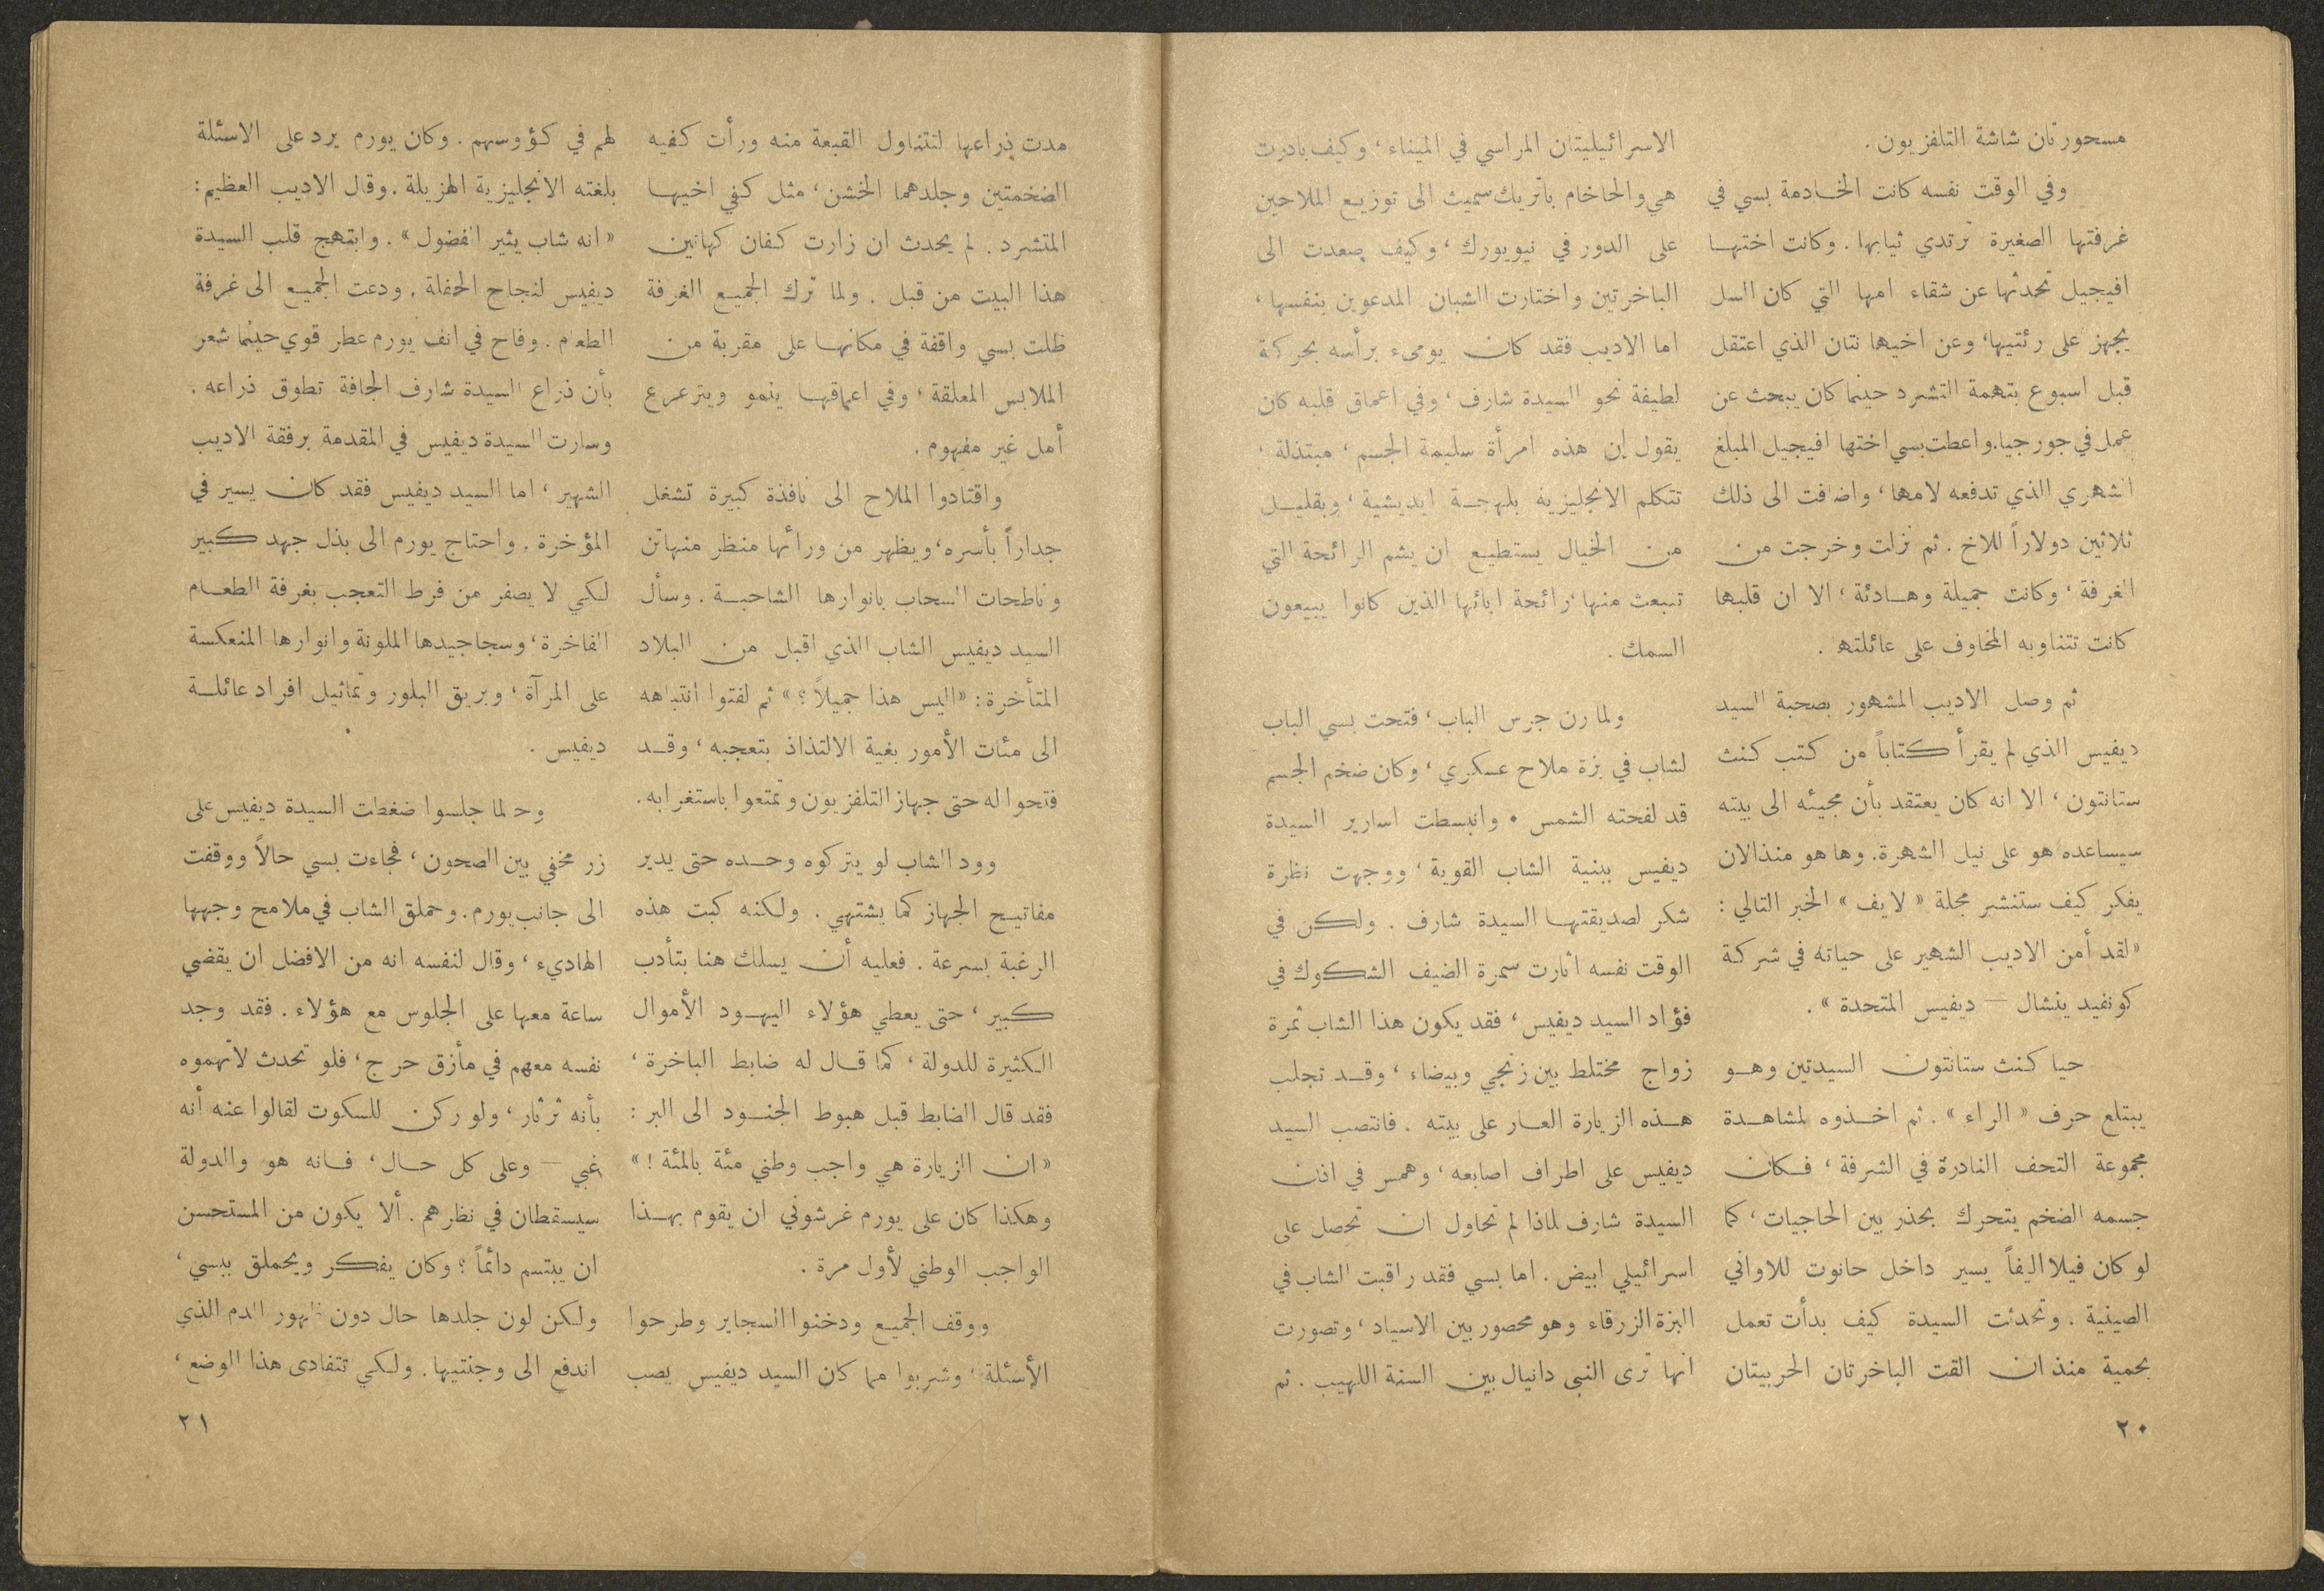 مسحورتان شاشة التلفزيون.
وفي الوقت نفسه كانت الخادمة بسي في
غرفتها الصغيرة ترتدي ثيابها. وكانت اختها
افيجيل تحدثها عن شقاء امها التي كان السل
يجهز على رئتيها، وعن اخيها نتان الذي اعتقل
قبل اسبوع بتهمة التشرد حينما كان يبحث عن
عمل في جورجيا. واعطت بسي اختها افيجيل المبلغ
الشهري الذي تدفعه لامها، واضافت الى ذلك
ثلاثين دولاراً للاخ. ثم نزلت وخرجت من
الغرفة، وكانت جميلة وهادئة، الا ان قلبها
كانت تتناوبه المخاوف على عائلته.
ثم وصل الاديب المشهور بصحبة السيد
ديفيس الذي لم يقرأ كتاباً من كتب كنث
ستانتون، الا انه كان يعتقد بأن مجيئه الى بيته
سيساعده هو على نيل الشهرة. وها هو منذ الان
يفكر كيف ستنشر مجلة «لايف» الخبر التالي:
«لقد أمن الاديب الشهير على حياته في شركة
كونفيد ينشال — ديفيس المتحدة».
حيا كنث ستانتون السيدتين وهو
يبتلع حرف «الراء». ثم اخذوه لمشاهدة
مجموعة التحف النادرة في الشرفة، فكان
جسمه الضخم يتحرك بحذر بين الحاجيات، كما
لو كان فيلا اليفاً يسير داخل حانوت للاواني
الصينية. وتحدثت السيدة كيف بدأت تعمل
بحمية منذ ان القت الباخرتان الحربيتان
الاسرائيليتان المراسي في الميناء، وكيف بادرت
هي والحاخام باتريك سميث الى توزيع الملاحين
على الدور في نيويورك، وكيف صعدت الى
الباخرتين واختارت الشبان المدعوين بنفسها،
اما الاديب فقد كان يومىء برأسه بحركة
لطيفة نحو السيدة شارف، وفي اعماق قلبه كان
يقول إن هذه امرأة سليمة الجسم، مبتذلة،
تتكلم الانجليزية بلهجة ايديشية، وبقليل
من الخيال يستطيع ان يشم الرائحة التي
تنبعث منها، رائحة ابائها الذين كانوا يبيعون
السمك.
ولما رن جرس الباب، فتحت بسي الباب
لشاب في بزة ملاح عسكري، وكان ضخم الجسم
قد لفحته الشمس. وانبسطت اسارير السيدة
ديفيس ببنية الشاب القوية، ووجهت نظرة
شكر لصديقتها السيدة شارف. ولكن في
الوقت نفسه اثارت سمرة الضيف الشكوك في
فؤاد السيد ديفيس، فقد يكون هذا الشاب ثمرة
زواج مختلط بين زنجي وبيضاء، وقد تجلب
هذه الزيارة العار على بيته. فانتصب السيد
ديفيس على اطراف اصابعه، وهمس في اذن
السيدة شارف لماذا لم تحاول ان تحصل على
اسرائيلي ابيض. اما بسي فقد راقبت الشاب في
البزة الزرقاء وهو محصور بين الاسياد، وتصورت
انها ترى النبي دانيال بين السنة اللهيب. ثم
٢٠
مدت ذراعها لتتناول القبعة منه ورأت كفيه
الضخمتين وجلدهما الخشن، مثل كفي اخيها
المتشرد. لم يحدث ان زارت كفان كهاتين
هذا البيت من قبل. ولما ترك الجميع الغرفة
ظلت بسي واقفة في مكانها على مقربة من
الملابس المعلقة، وفي اعماقها ينمو ويترعرع
أمل غير مفهوم.
واقتادوا الملاح الى نافذة كبيرة تشغل
جداراً بأسره، ويظهر من ورائها منظر منهاتن
وناطحات السحاب بانوارها الشاحبة. وسأل
السيد ديفيس الشاب الذي اقبل من البلاد
المتأخرة: «اليس هذا جميلاً؟» ثم لفتوا انتباهه
الى مئات الأمور بغية الالتذاذ بتعجبه، وقد
فتحوا له حتى جهاز التلفزيون وتمتعوا باستغرابه.
وود الشاب لو يتركوه وحده حتى يدير
مفاتيح الجهاز كما يشتهي. ولكنه كبت هذه
الرغبة بسرعة. فعليه أن يسلك هنا بتأدب
كبير، حتى يعطي هؤلاء اليهود الأموال
الكثيرة للدولة، كما قال له ضابط الباخرة،
فقد قال الضابط قبل هبوط الجنود الى البر:
«ان الزيارة هي واجب وطني مئة بالمئة!»
وهكذا كان على يورم غرشوني ان يقوم بهذا
الواجب الوطني لأول مرة.
ووقف الجميع ودخنوا السجاير وطرحوا
الأسئلة، وشربوا مما كان السيد ديفيس يصب
لهم في كؤوسهم. وكان يورم يرد على الاسئلة
بلغته الانجليزية الهزيلة. وقال الاديب العظيم:
«انه شاب يثير الفضول». وابتهج قلب السيدة
ديفيس لنجاح الحفلة. ودعت الجميع الى غرفة
الطعام. وفاح في انف يورم عطر قوي حينما شعر
بأن ذراع السيدة شارف الجافة تطوق ذراعه.
وسارت السيدة ديفيس في المقدمة برفقة الاديب
الشهير، اما السيد ديفيس فقد كان يسير في
المؤخرة. واحتاج يورم الى بذل جهد كبير
لكي لا يصفر من فرط التعجب بغرفة الطعام
الفاخرة، وسجاجيدها الملونة وانوارها المنعكسة
على المرآة، وبريق البلور وتماثيل افراد عائلة
ديفيس.
وحالما جلسوا ضغطت السيدة ديفيس على
زر مخفي بين الصحون، فجاءت بسي حالاً ووقفت
الى جانب يورم. وحملق الشاب في ملامح وجهها
الهاديء، وقال لنفسه انه من الافضل ان يقضي
ساعة معها على الجلوس مع هؤلاء. فقد وجد
نفسه معهم في مأزق حرج، فلو تحدث لاتهموه
بأنه ثرثار، ولو ركن للسكوت لقالوا عنه أنه
غبي — وعلى كل حال، فانه هو والدولة
سيسقطان في نظرهم. ألا يكون من المستحسن
ان يبتسم دائماً؟ وكان يفكر ويحملق ببسي،
ولكن لون جلدها حال دون ظهور الدم الذي
اندفع الى وجنتيها. ولكي تتفادى هذا الوضع،
٢١